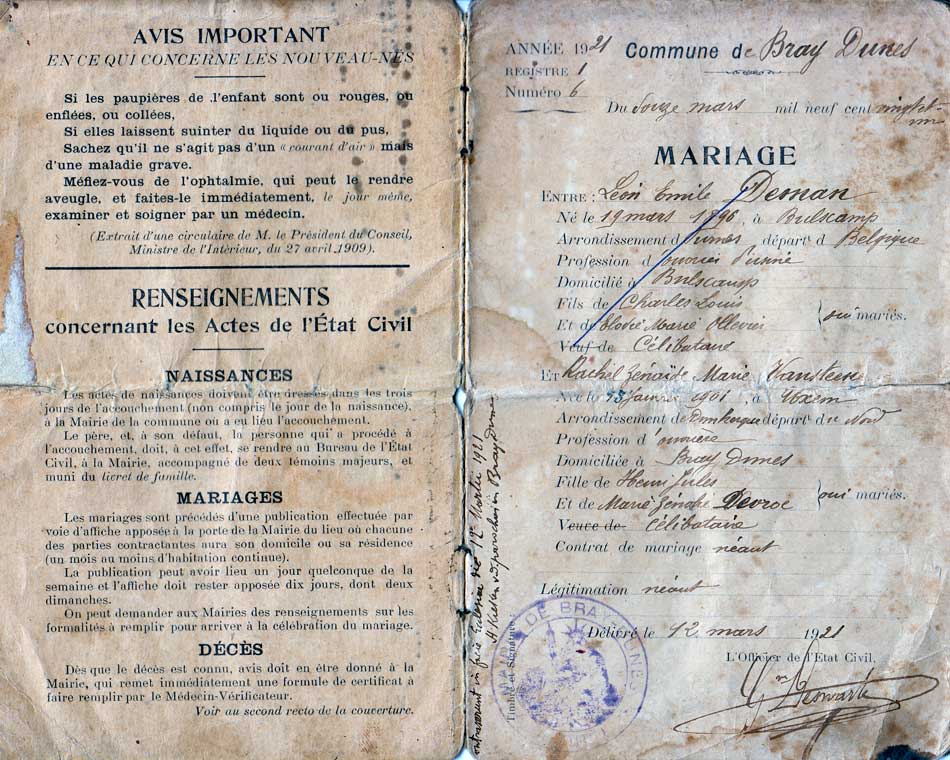 AVIS IMPORTANT
EN CE QUI CONCERNE LES NOUVEAU-NÉS
Si les paupières de l'enfant sont ou rouges, ou
enflées, ou collées,
Si elles laissent suinter du liquide ou du pus,
Sachez qu'il ne s'agit pas d'un « courant d'air » mais
d'une maladie grave.
Méfiez-vous de l'ophtalmie, qui peut le rendre
aveugle, et faites-le immédiatement, le jour même,
examiner et soigner par un médecin.
(Extrait d'une circulaire de M. le Président du Conseil,
Ministre de l'Intérieur, du 27 avril 1909).
RENSEIGNEMENTS
concernant les Actes de l'État Civil
NAISSANCES
Les actes de naissances doivent être dressés dans les trois
jours de l'accouchement (non compris le jour de la naissance),
à la Mairie de la commune où a eu lieu l'accouchement.
Le père, et, à son défaut, la personne qui a procédé à
l'accouchement, doit, à cet effet, se rendre au Bureau de l'État
Civil, à la Mairie, accompagné de deux témoins majeurs, et
muni du livret de famille.
MARIAGES
Les mariages sont précédés d'une publication effectuée par
voie d'affiche apposée à la porte de la Mairie du lieu où chacune
des parties contractantes aura son domicile ou sa résidence
(un mois au moins d'habitation continue).
La publication peut avoir lieu un jour quelconque de la
semaine et l'affiche doit rester apposée dix jours, dont deux
dimanches.
On peut demander aux Mairies des renseignements sur les
formalités à remplir pour arriver à la célébration du mariage.
DÉCÈS
Dès que le décès est connu, avis doit en être donné à la
Mairie, qui remet immédiatement une formule de certificat à
faire remplir par le Médecin-Vérificateur.
Voir au second recto de la couverture.
die 12ª Martii 1921
in Bray dunes
ANNÉE 1921 Commune de Bray Dunes
REGISTRE 1
Numéro 6
Du douze mars mil neuf cent vingt et
un
MARIAGE
ENTRE: Léon Emile Deman
Né le 19 mars 1896, à Bulscamp
Arrondissement d Furnes, départ. d Belgique
Profession d'ouvrier d'usine
Domicilié à Bulscamp
Fils de Charles Louis
Et de Elodie Marie Ollevier } oui mariés.
Veuf de Célibataire
ET Rachel Zénaïde Marie Vansteene
Née le 13 Janvier 1901, à Uxem
Arrondissement de Dunkerque départ. du Nord
Profession d'ouvrière
Domiciliée à Bray Dunes
Fille de Henri Jules
Et de Marie Zénobe Devroe } oui mariés.
Veuve de Célibataire
Contrat de mariage néant
Légitimation néant
Délivré le 12 mars 1921
L'Officier de l'Etat Civil,
Timbre et Signature
DE BRAY-DUNES